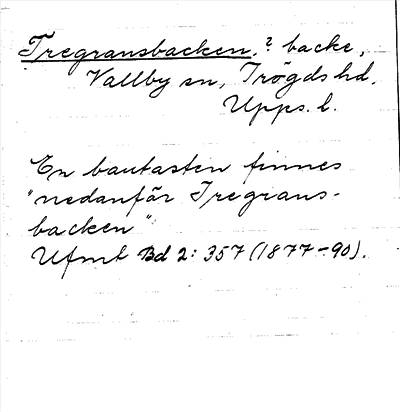 Tregransbacken, ? backe,
Vallby sn, Trögds hd.
Upps. l.
En bautasten finnes
"nedanför Tregrans-
backen"
Ufmt Bd 2: 357 (1877-90).